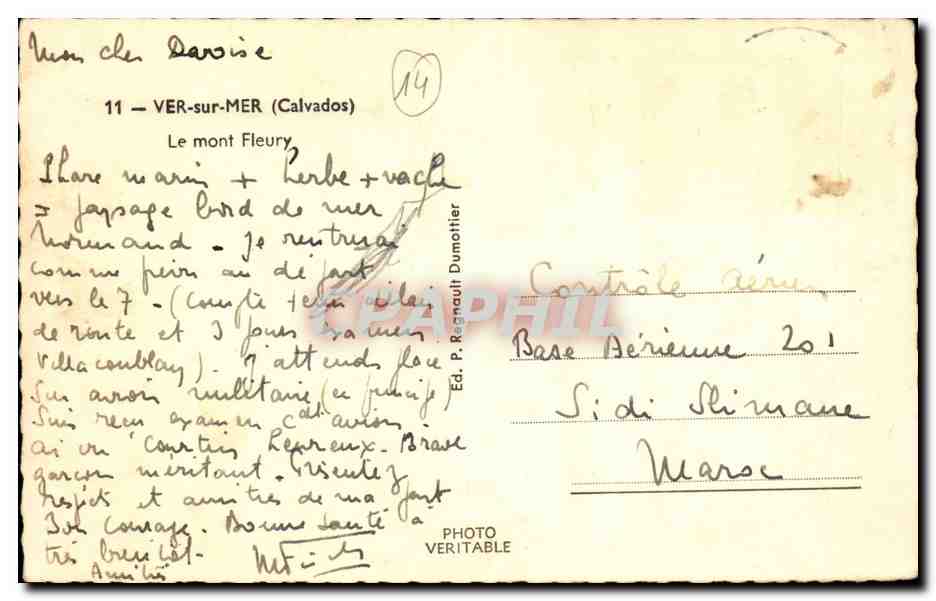 Mon cher Davoise
14
11 — VER-sur-MER (Calvados)
Le mont Fleury
Phare marin + herbe + vache
= paysage bord de mer
Normand - je rentrerai
comme prévu au départ
vers le 7 - (compte délai
de route et 3 jours examen
Villacoublay). J'attends place
sur avion militaire (en principe)
Suis reçu examen avion.
ai vu Courtin Brave
garçon méritant. Présentez
respects et amitiés de ma part
Bon courage. Bonne santé à
très bientôt-
Amitiés
Ed. P. Regnault Dumottier
CPAPHIL
Contrôle aérien
Base Aérienne 201
Sidi Slimane
Maroc
PHOTO
VERITABLE